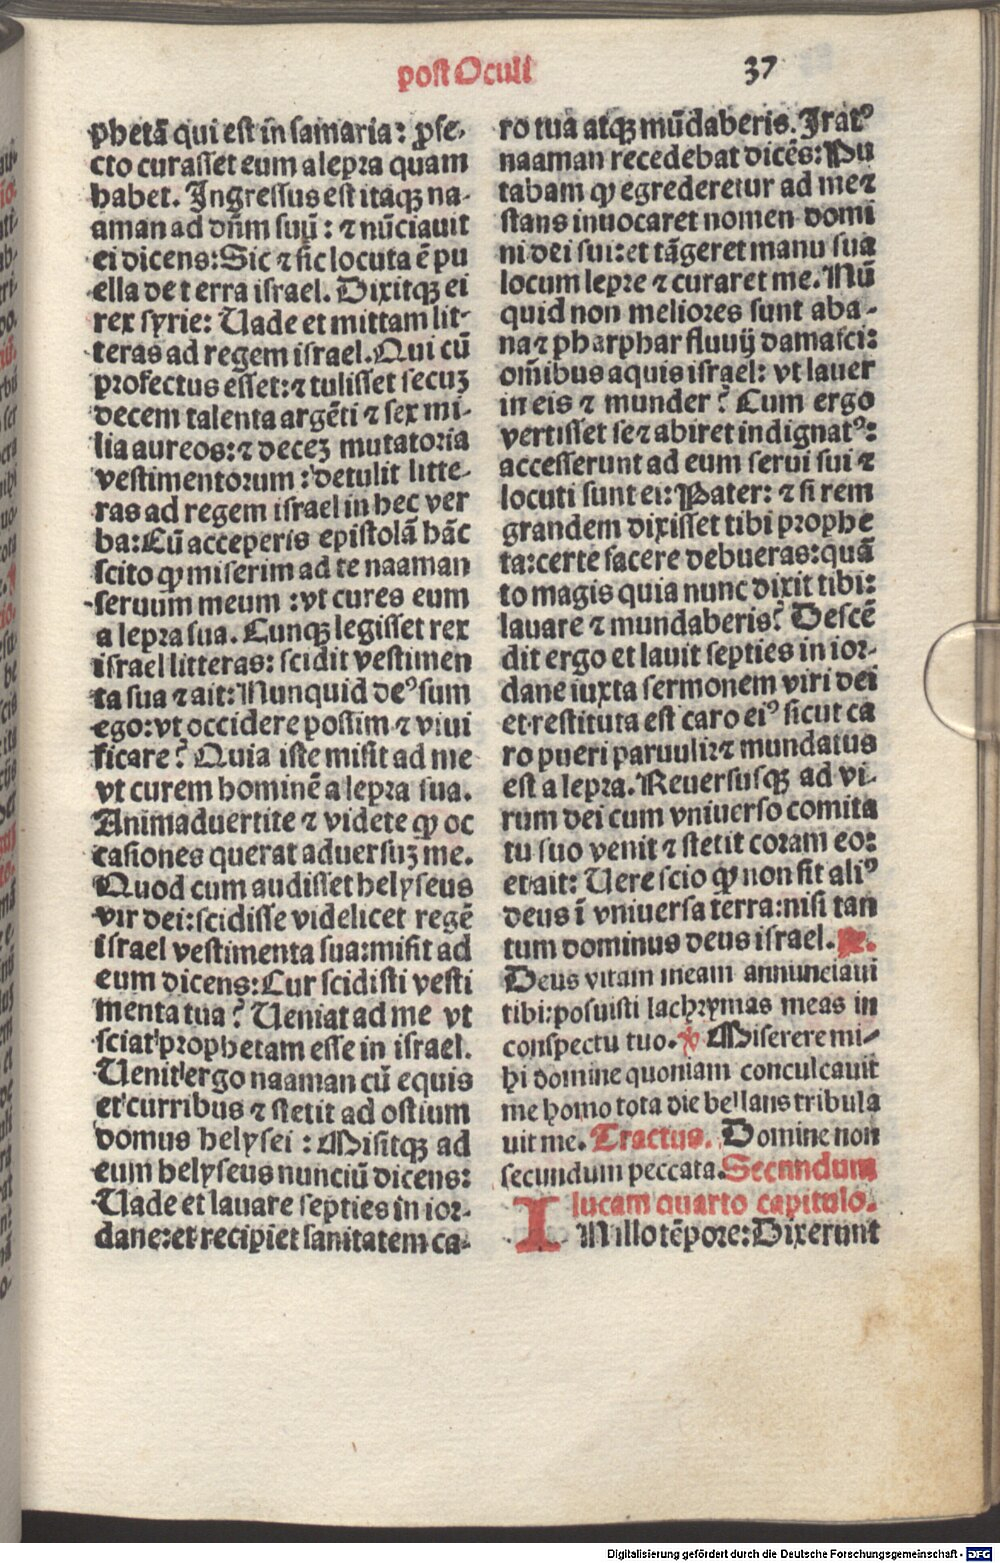 post Oculi 37
phetā qui est in samaria: ꝓfe-
cto curasset eum a lepra quam
habet. Ingressus est itaqꝫ na-
aman ad dñm suū: ⁊ nūciauit
ei dicens: Sic ⁊ sic locuta ē pu
ella de terra israel. Dixitqꝫ ei
rex syrie: Uade et mittam lit-
teras ad regem israel. Qui cū
profectus esset: ⁊ tulisset secuꝫ
decem talenta argēti ⁊ sex mi-
lia aureos: ⁊ deceꝫ mutatoria
vestimentorum: detulit litte-
ras ad regem israel in hec ver
ba: Cū acceperis epistolā hāc
scito ꝙ miserim ad te naaman
seruum meum: vt cures eum
a lepra sua. Cunqꝫ legisset rex
israel litteras: scidit vestimen
ta sua ⁊ ait: Nunquid deꝰ sum
ego: vt occidere possim ⁊ viui
ficare? Quia iste misit ad me
vt curem hominē a lepra sua.
Animaduertite ⁊ videte ꝙ oc
casiones querat aduersuꝫ me.
Quod cum audisset helyseus
vir dei: scidisse videlicet regē
israel vestimenta sua: misit ad
eum dicens: Cur scidisti vesti
menta tua? Ueniat ad me vt
sciat prophetam esse in israel.
Uenit ergo naaman cū equis
et curribus ⁊ stetit ad ostium
domus helysei: Misitqꝫ ad
eum helyseus nunciū dicens:
Uade et lauare septies in ior-
dane: et recipiet sanitatem ca-
ro tua atqꝫ mūdaberis. Iratꝰ
naaman recedebat dicēs: Pu
tabam ꝙ egrederetur ad me ⁊
stans inuocaret nomen domi
ni dei sui: et tāgeret manu sua
locum lepre ⁊ curaret me. Nū
quid non meliores sunt aba-
na ⁊ pharphar fluuij damasci:
om̄ibus aquis israel: vt lauer
in eis ⁊ munder? Cum ergo
vertisset se ⁊ abiret indignatꝰ:
accesserunt ad eum serui sui ⁊
locuti sunt ei: Pater: ⁊ si rem
grandem dixisset tibi prophe
ta: certe facere debueras: quā
to magis quia nunc dixit tibi:
lauare ⁊ mundaberis? Descē
dit ergo et lauit septies in ior-
dane iuxta sermonem viri dei
et restituta est caro eiꝰ sicut ca
ro pueri paruuli: ⁊ mundatus
est a lepra. Reuersusqꝫ ad vi-
rum dei cum vniuerso comita
tu suo venit ⁊ stetit coram eo:
et ait: Uere scio ꝙ non sit aliꝰ
deus ī vniuersa terra: nisi tan
tum dominus deus israel.
Deus vitam meam annunciaui
tibi: posuisti lachrymas meas in
conspectu tuo. ℣ Miserere mi-
hi domine quoniam conculcauit
me homo tota die bellans tribula
uit me. Tractus. Domine non
secundum peccata. Secundum
lucam quarto capitulo.
IN illo tēpore: Dixerunt
Digitalisierung gefördert durch die Deutsche Forschungsgemeinschaft - DFG